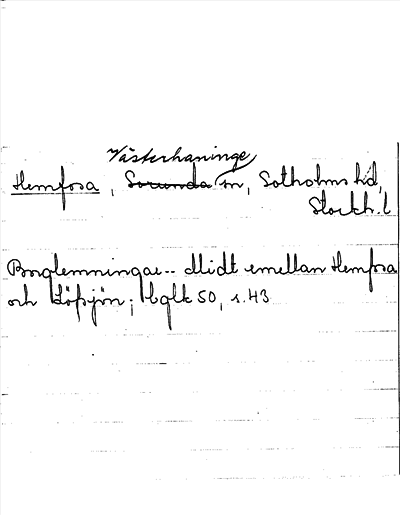 Västerhaninge
Hemfosa, Sorunda sn, Sotholms hd,
Stockh. l
Borglemningar.. Midt emellan Hemfosa
och Löpsjön; bglk 50, s. 43